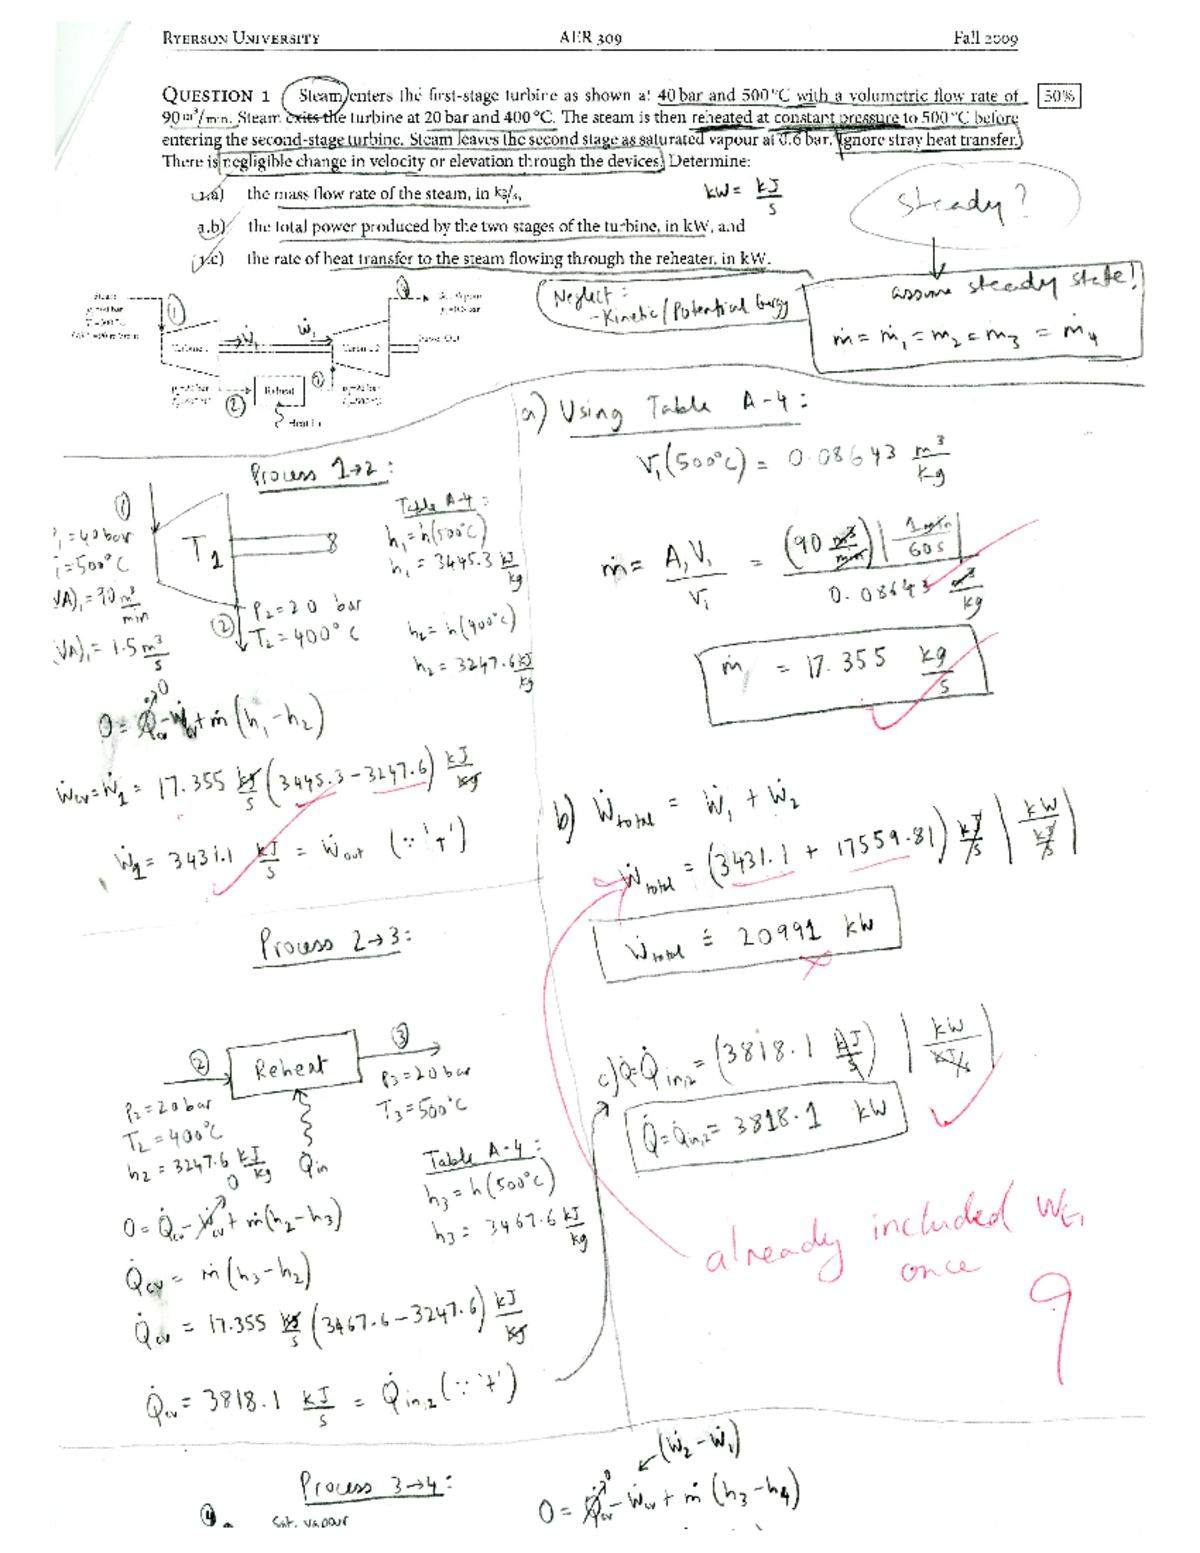 RYERSON UNIVERSITY AER 309 Fall 2009
QUESTION 1 Steam enters the first-stage turbine as shown at 40 bar and 500 °C with a volumetric flow rate of 50%
90 m³/min. Steam exits the turbine at 20 bar and 400 °C. The steam is then reheated at constant pressure to 500 °C before
entering the second-stage turbine. Steam leaves the second stage as saturated vapour at 0.6 bar. Ignore stray heat transfer.
There is negligible change in velocity or elevation through the devices. Determine:
1.a) the mass flow rate of the steam, in kg/s,
kW = kJ/s
steady?
1.b) the total power produced by the two stages of the turbine, in kW, and
1.c) the rate of heat transfer to the steam flowing through the reheater, in kW.
Neglect:
- Kinetic/Potential Energy
assume steady state!
ṁ = ṁ₁ = ṁ₂ = ṁ₃ = ṁ₄
① Ẇ₁ Ẇ₁ ④
Power Out
② Reheat ③
Heat In
a) Using Table A-4:
V₁(500°C) = 0.08643 m³/kg
ṁ = A₁V₁/v₁ = (90 m³/min) | 1 min/60 s | / 0.08643 m³/kg
ṁ = 17.355 kg/s
Process 1→2:
①
P₁ = 40 bar
T₁ = 500°C
(VA)₁ = 90 m³/min
(VA)₁ = 1.5 m³/s
T₁
② P₂ = 20 bar
T₂ = 400°C
Table A-4:
h₁ = h(500°C)
h₁ = 3445.3 kJ/kg
h₂ = h(400°C)
h₂ = 3247.6 kJ/kg
0 = Q̇cv - Ẇcv + ṁ(h₁ - h₂)
Ẇcv = Ẇ₁ = 17.355 kg/s (3445.3 - 3247.6) kJ/kg
Ẇ₁ = 3431.1 kJ/s = Ẇout (∵ '+')
b) Ẇtotal = Ẇ₁ + Ẇ₂
Ẇtotal = (3431.1 + 17559.81) kJ/s | kW/kJ/s |
Ẇtotal ≐ 20991 kW
c) Q̇ = Q̇in,2 = (3818.1 kJ/s) | kW/kJ/s |
Q̇ = Q̇in,2 = 3818.1 kW
already included Wt₁
once
9
Process 2→3:
② Reheat ③
P₂ = 20 bar
T₂ = 400°C
h₂ = 3247.6 kJ/kg
Q̇in
P₃ = 20 bar
T₃ = 500°C
Table A-4:
h₃ = h(500°C)
h₃ = 3467.6 kJ/kg
0 = Q̇cv - Ẇcv + ṁ(h₂ - h₃)
Q̇cv = ṁ(h₃ - h₂)
Q̇cv = 17.355 kg/s (3467.6 - 3247.6) kJ/kg
Q̇cv = 3818.1 kJ/s = Q̇in,2 (∵ '+')
Process 3→4:
④ Sat. vapour
(Ẇ₂ - Ẇ₁)
0 = Q̇cv - Ẇcv + ṁ(h₃ - h₄)